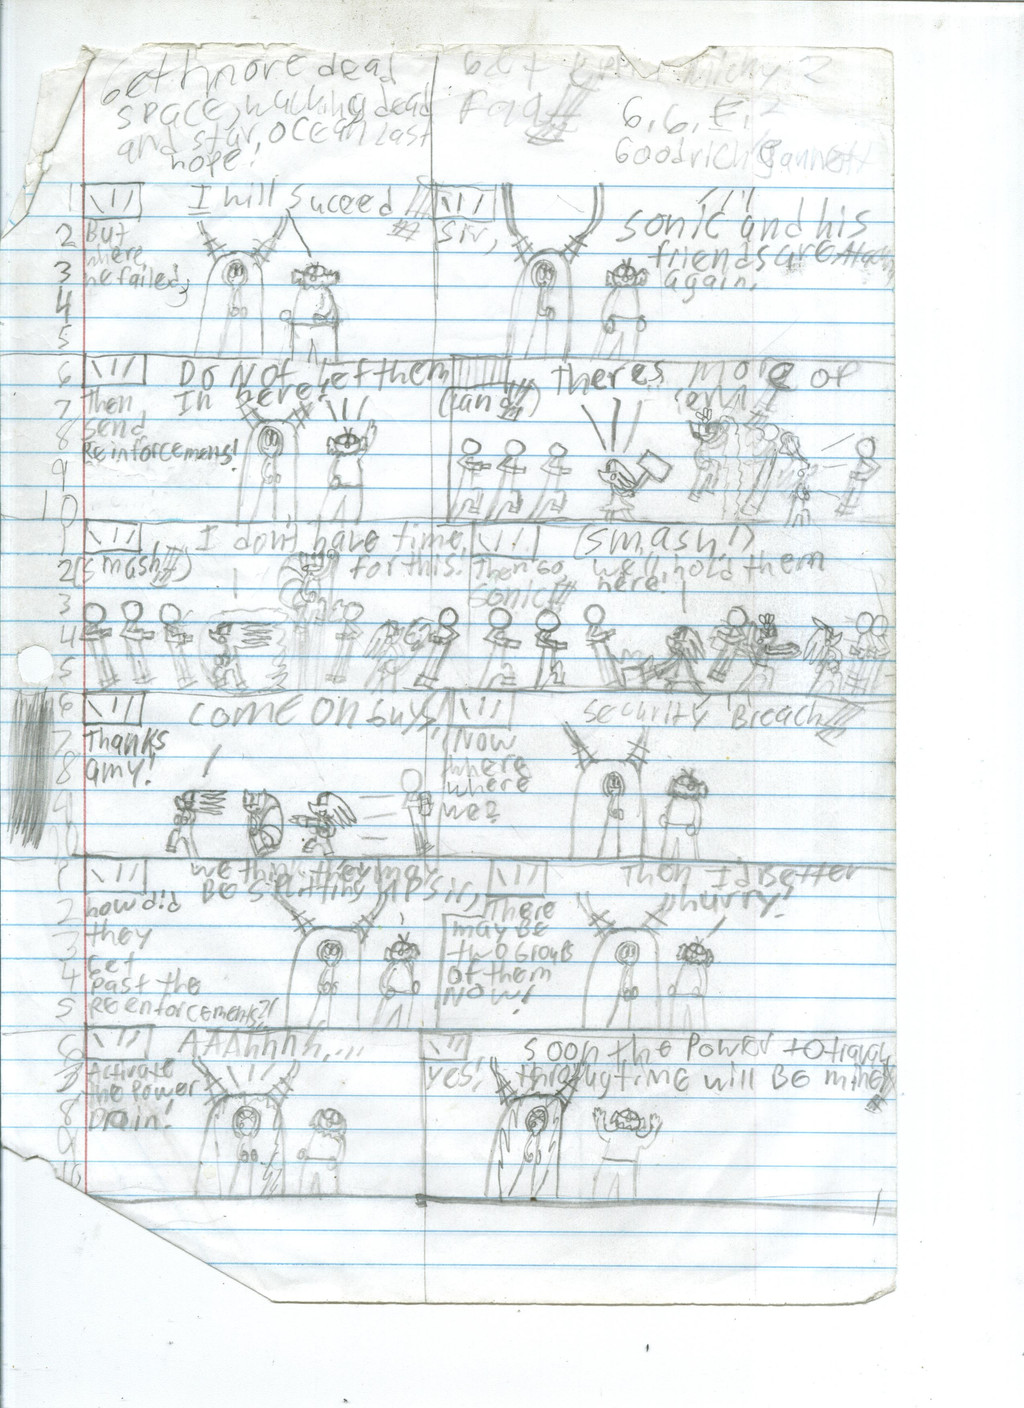 Get more dead
space, walking dead
and star, ocean last
hope!
Get
2
G, G, E, 2
Goodrich Gannett
1
2
3
4
5
6
7
8
9
10
1
2
3
4
5
6
7
8
9
10
1
2
3
4
5
6
7
8
9
10
I will Suceed!!!
But
where
he failed,
Sir,
Sonic and his
friends are
again.
DO NOT Let them
In here!
Then
send
Reinforcemens!
Theres more of
(Bang!!!)
I dont have time,
for this!
(Smash!!!)
(Smash!)
Then Go
Sonic!!!
we'll hold them
here!
COME ON Guys,
Thanks
amy!
Security Breach!!!
Now
where
where
we?
we think they may
BE SPlitting UP Sir,
how did
they
Get
Past the
REenforcements?!
Then I'd BEtter
hurry!
There
may BE
two GrouPs
of them
NOW!
AAAhhhh,...
Activate
the Power
Drain!
Yes!
Soon the Power to travel
through time will BE mine!!!
1